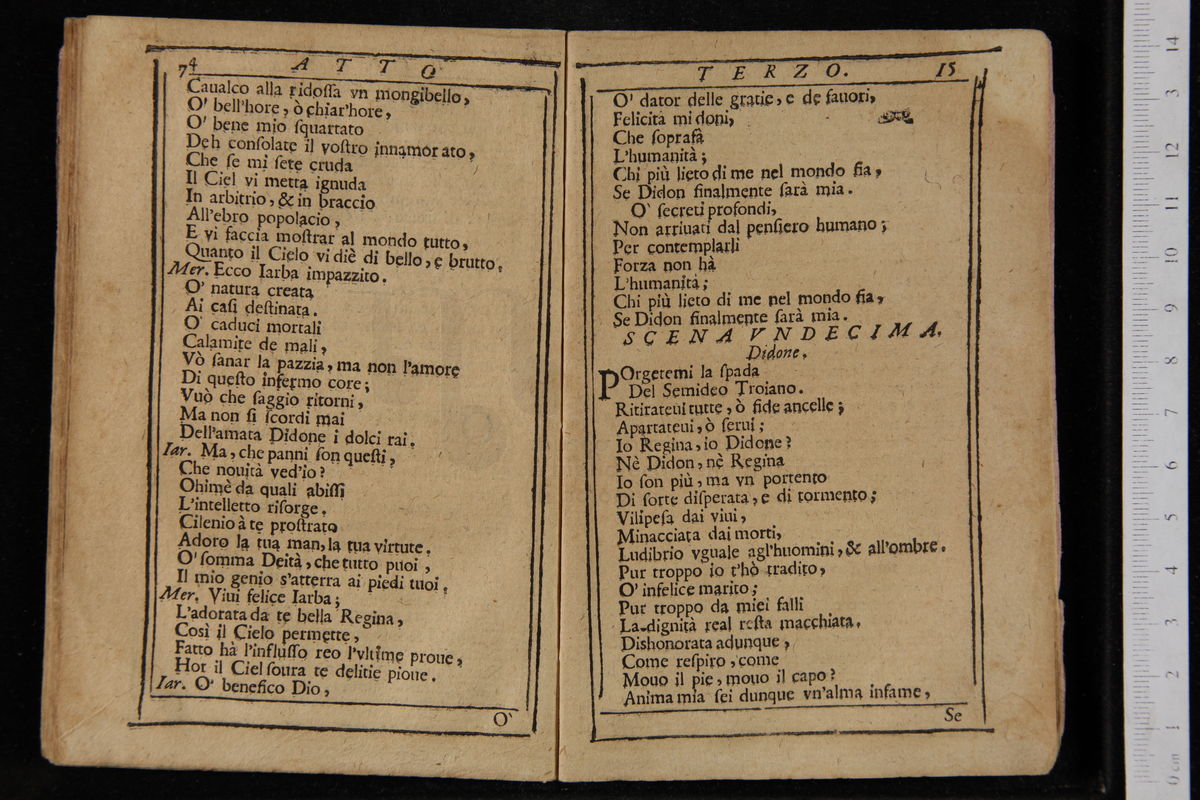 74 ATTO
Caualco alla ridoſſa vn mongibello,
O' bell'hore, ò chiar'hore,
O' bene mio ſquartato
Deh conſolate il voſtro innamorato,
Che ſe mi ſete cruda
Il Ciel vi metta ignuda
In arbitrio, & in braccio
All'ebro popolacio,
E vi faccia moſtrar al mondo tutto,
Quanto il Cielo vi diè di bello, e brutto.
Mer. Ecco Iarba impazzito.
O' natura creata
Ai caſi deſtinata.
O' caduci mortali
Calamite de mali,
Vò ſanar la pazzia, ma non l'amore
Di queſto infermo core;
Vuò che ſaggio ritorni,
Ma non ſi ſcordi mai
Dell'amata Didone i dolci rai.
Iar. Ma, che panni ſon queſti,
Che nouità ved'io?
Ohimè da quali abiſſi
L'intelletto riſorge.
Cilenio à te proſtrato
Adoro la tua man, la tua virtute.
O' ſomma Deità, che tutto puoi,
Il mio genio s'atterra ai piedi tuoi.
Mer. Viui felice Iarba;
L'adorata da te bella Regina,
Così il Cielo permette,
Fatto hà l'influſſo reo l'vltime proue,
Hor il Ciel ſoura te delitie pioue.
Iar. O' benefico Dio,
O'
TERZO. 15
O' dator delle gratie, e de fauori,
Felicità mi doni,
Che ſoprafà
L'humanità;
Chi più lieto di me nel mondo fia,
Se Didon finalmente ſarà mia.
O' ſecreti profondi,
Non arriuati dal penſiero humano;
Per contemplarli
Forza non hà
L'humanità;
Chi più lieto di me nel mondo fia,
Se Didon finalmente ſarà mia.
SCENA VNDECIMA.
Didone.
POrgetemi la ſpada
Del Semideo Troiano.
Ritirateui tutte, ò fide ancelle;
Apartateui, ò ſerui;
Io Regina, io Didone?
Nè Didon, nè Regina
Io ſon più, ma vn portento
Di ſorte diſperata, e di tormento;
Vilipeſa dai viui,
Minacciata dai morti,
Ludibrio vguale agl'huomini, & all'ombre.
Pur troppo io t'hò tradito,
O' infelice marito;
Pur troppo da miei falli
La dignità real reſta macchiata.
Dishonorata adunque,
Come reſpiro, come
Mouo il pie, mouo il capo?
Anima mia ſei dunque vn'alma infame,
Se
14
13
12
11
10
9
8
7
6
5
4
3
2
1
0 cm